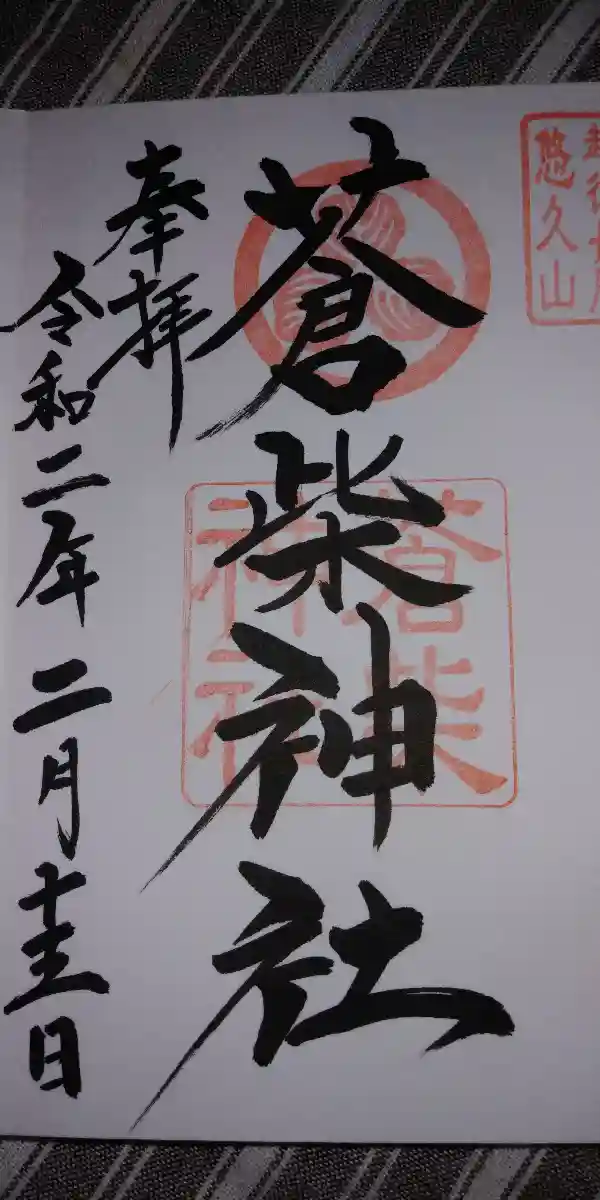 越後長岡
悠久山
蒼柴神社
蒼柴
神社
奉拝
令和二年二月十五日